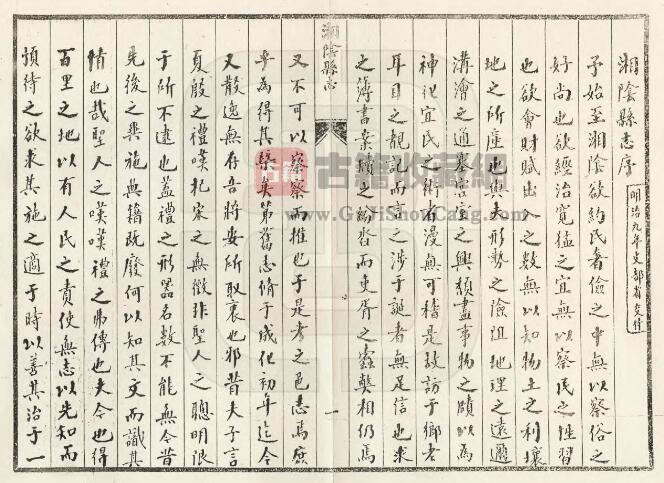 湘陰縣志序
予始至湘陰欲約民奢儉之中無以察俗之
好尚也欲經治寬猛之宜無以察民之性習
也欲會財賦出入之數無以知物土之利壤
地之所產也與夫形勢之險沮地理之遠邇
溝澮之通塞宗言之興頹盡事物之賾以為
神化宜民之術者漫無可稽是故訪于鄉者
耳目之覩記而言之涉于誕者無足信也求
之簿書案牘之紛沓而吏胥之蠹襲相仍焉
又不可以察察而推也于是考之邑志焉庶
乎為得其槩矣第舊志脩于成化初年迄今
又散逸無存吾將安所取衷也邪昔夫子言
夏殷之禮嘆杞宋之無徵非聖人之聰明限
于所不逮也蓋禮之形器名數不能無今昔
先後之異施典籍既廢何以知其文而識其
情也哉聖人之嘆嘆禮之弗傳也夫今也得
百里之地以有人民之責使無志以先知而
預待之欲求其施之適于時以善其治于一
湘陰縣志
一
明治九年文部省交付
古籍收書網
www.GujiShouCang.com